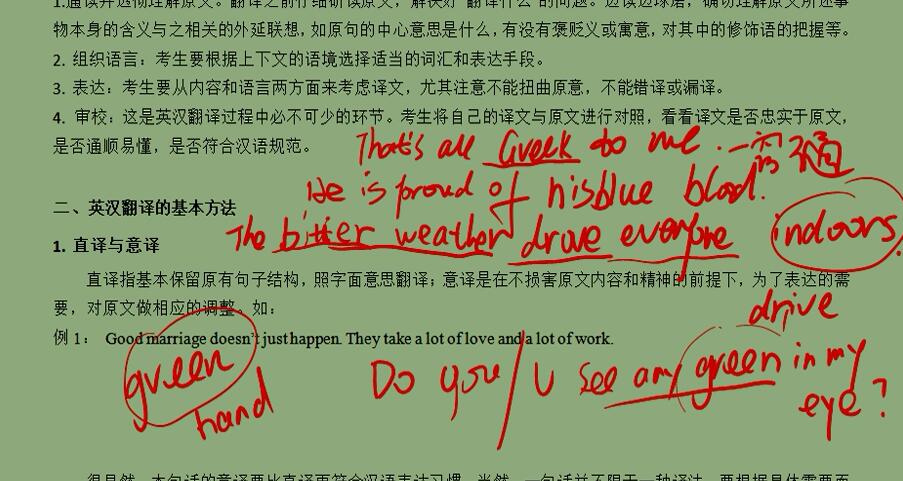 1.通读并透彻理解原文。翻译之前仔细研读原文，解决好“翻译什么”的问题。边读边琢磨，确切理解原文所述事
物本身的含义与之相关的外延联想，如原句的中心意思是什么，有没有褒贬义或寓意，对其中的修饰语的把握等。
2. 组织语言：考生要根据上下文的语境选择适当的词汇和表达手段。
3. 表达：考生要从内容和语言两方面来考虑译文，尤其注意不能扭曲原意，不能错译或漏译。
4. 审校：这是英汉翻译过程中必不可少的环节。考生将自己的译文与原文进行对照，看看译文是否忠实于原文，
是否通顺易懂，是否符合汉语规范。
That's all Greek to me. 一窍不通
He is proud of hisblue blood.
二、英汉翻译的基本方法
The bitter weather drove everyone indoors.
1. 直译与意译
直译指基本保留原有句子结构，照字面意思翻译；意译是在不损害原文内容和精神的前提下，为了表达的需
要，对原文做相应的调整。如：
drive
例 1： Good marriage doesn't just happen. They take a lot of love and a lot of work.
green
hand
Do you / U see any green in my
eye ?
很显然，本句话的意译要比直译更符合汉语表达习惯。当然，一句话并不限于一种译法，要根据具体需要而